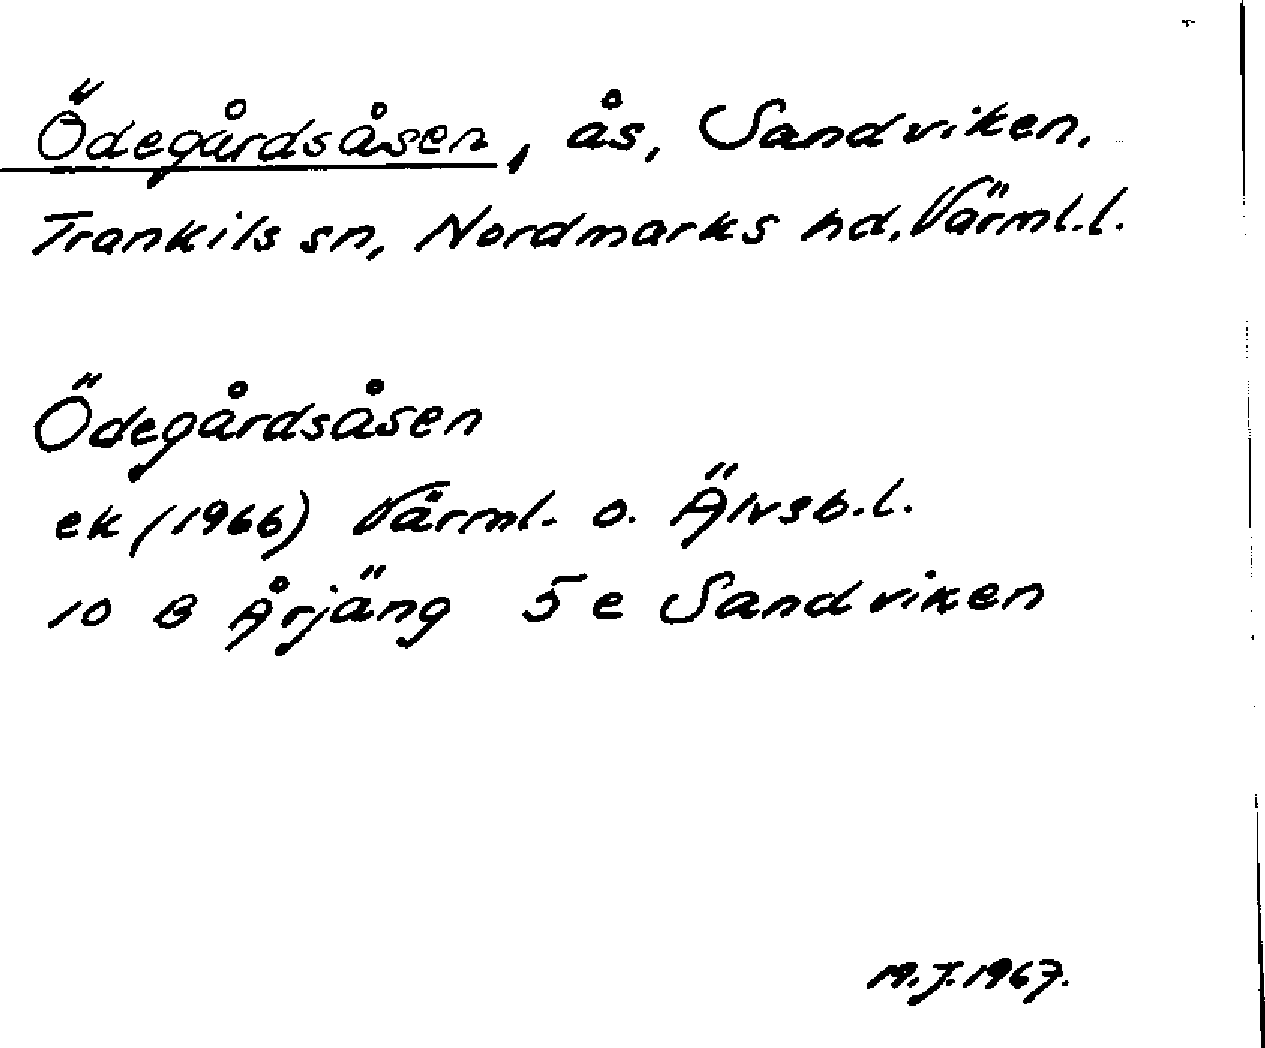 Ödegårdsåsen, ås, Sandviken.
Trankils sn, Nordmarks hd, Värml.l.
Ödegårdsåsen
ek (1966) Värml. o. Älvsb.l.
10 B Årjäng 5 e Sandviken
M.J. 1967.